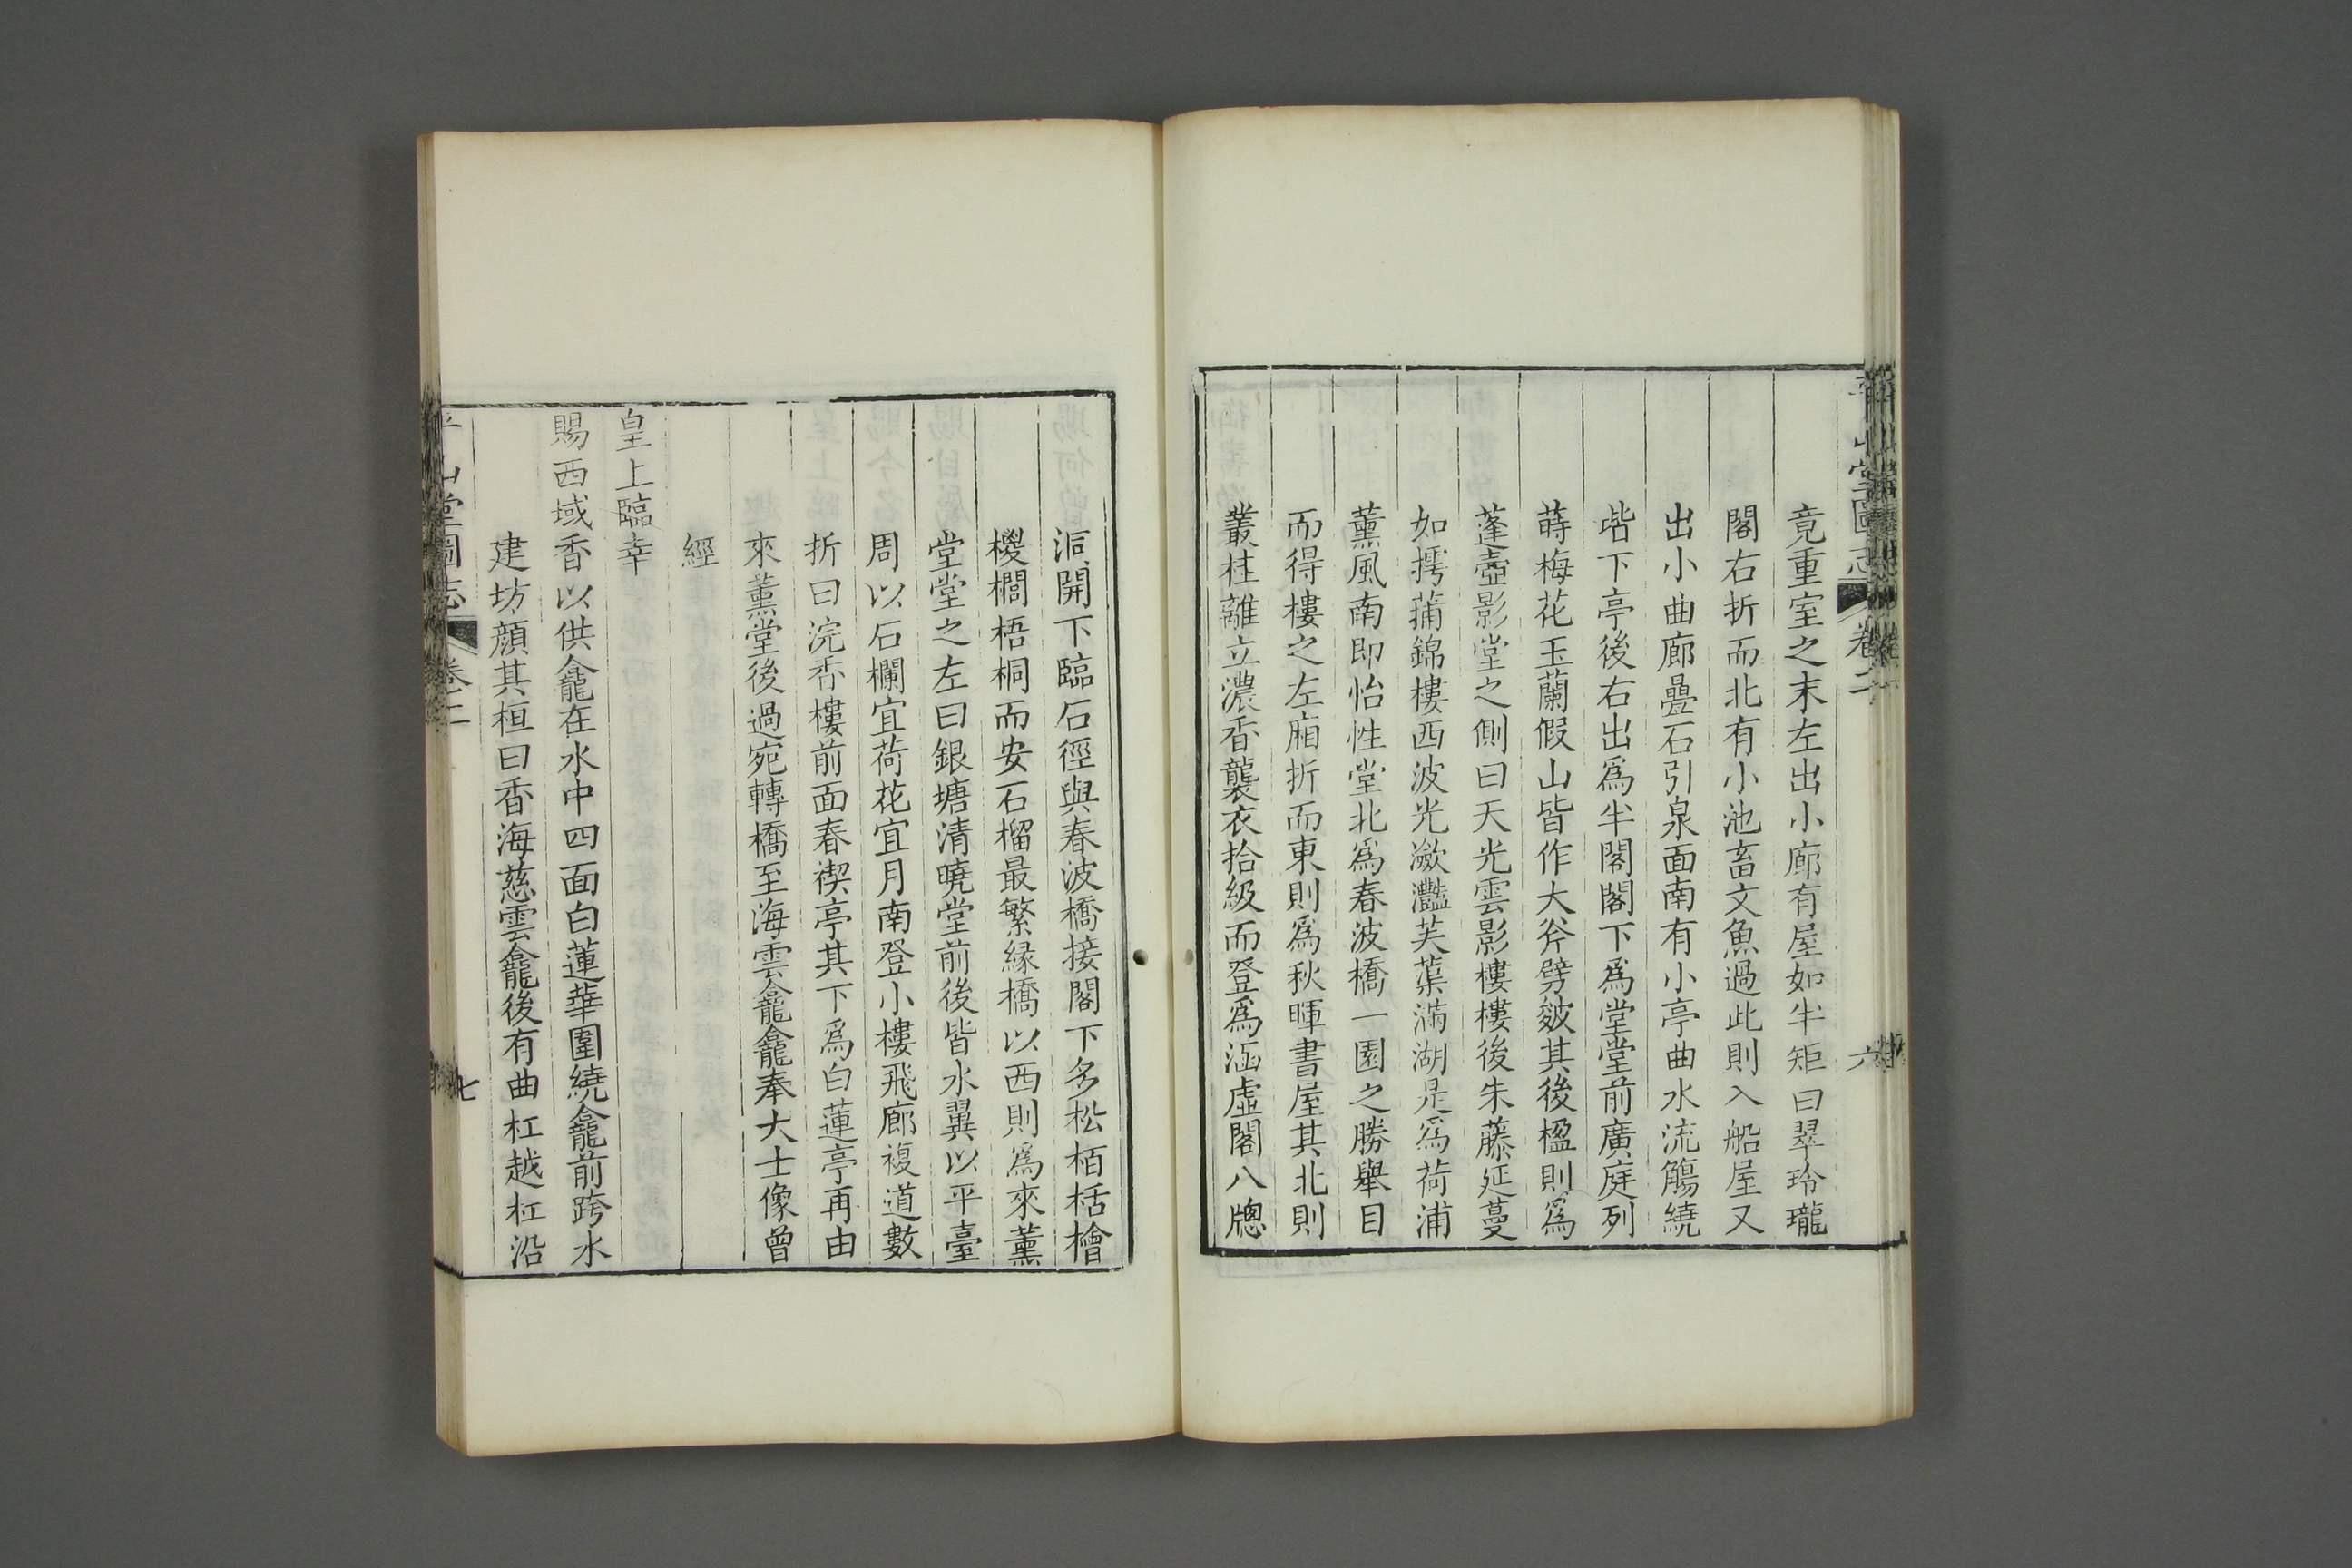 平山堂圖志 卷二 六
竟重室之末左出小廊有屋如半矩曰翠玲瓏
閣右折而北有小池畜文魚過此則入船屋又
出小曲廊疊石引泉面南有小亭曲水流觴繞
喈下亭後右出爲半閣閣下爲堂堂前廣庭列
蒔梅花玉蘭假山皆作大斧劈皴其後楹則爲
蓬壺影堂之側曰天光雲影樓樓後朱藤延蔓
如摴蒲錦樓西波光瀲灩芙蕖滿湖是爲荷浦
薰風南即怡性堂北爲春波橋一園之勝舉目
而得樓之左廂折而東則爲秋暉書屋其北則
叢桂離立濃香襲衣拾級而登爲涵虛閣八牕
洞開下臨石徑與春波橋接閣下多松栢栝檜
櫻櫚梧桐而安石榴最繁緣橋以西則爲來薰
堂堂之左曰銀塘清曉堂前後皆水翼以平臺
周以石欄宜荷花宜月南登小樓飛廊複道數
折曰浣香樓前面春禊亭其下爲白蓮亭再由
來薰堂後過宛轉橋至海雲龕龕奉大士像曾
經
皇上臨幸
賜西域香以供龕在水中四面白蓮華圍繞龕前跨水
建坊顏其桓曰香海慈雲龕後有曲杠越杠沿
平山堂圖志 卷二 七